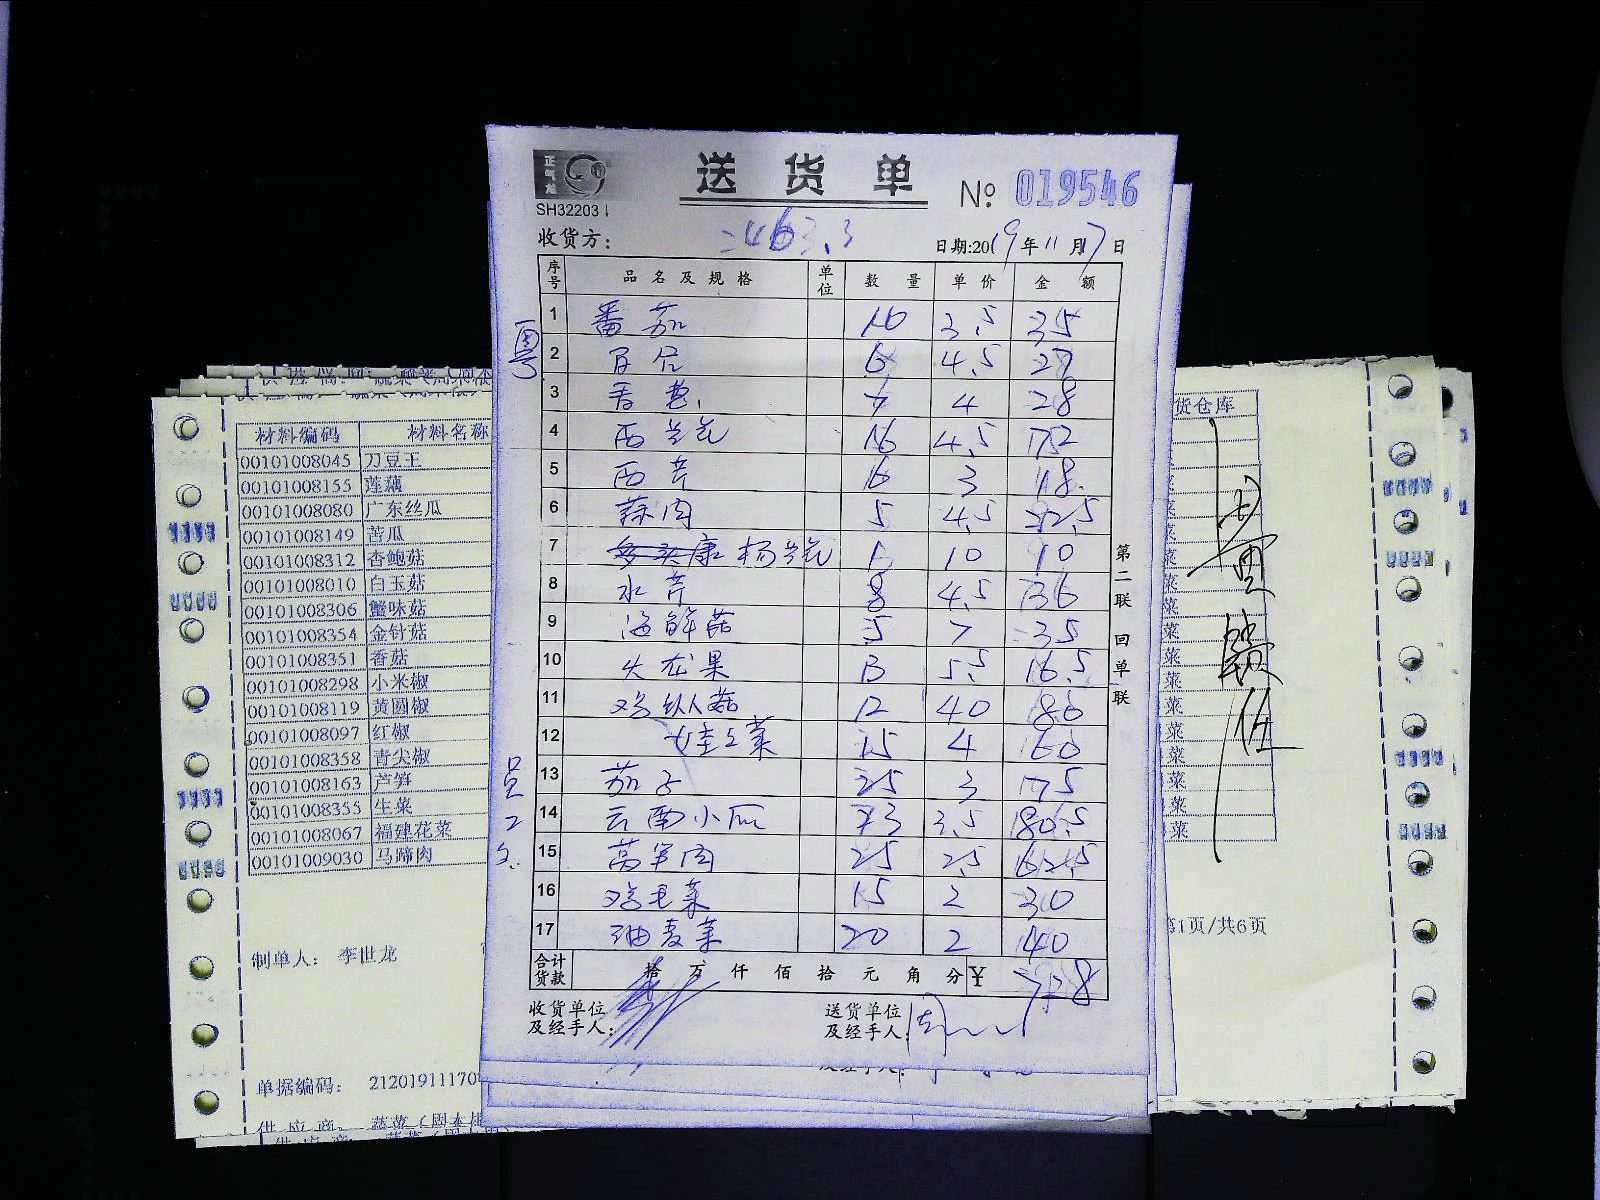 送货单 № 019546
SH32203
收货方： 2463.3 日期:2019年11月17日
序号 品名及规格 单位 数量 单价 金额
1 番茄 10 3.5 35
2 6 4.5 27
3 香 4 28
4 西兰花 16 4.5
5 西芹 3
6 蒜肉 5 4.5
7 杨兰花 1 10 10
8 水芹 8 4.5 36
9 海鲜菇 5 7 35
10 火龙果 3 5.5 16.5
11 鸡纵菇 12 40
12 娃娃菜 15 4 60
13 茄子 25 3 75
14 云南小瓜 3.5
15 莴笋肉 25 2.5 62.5
16 鸡毛菜 15 2 30
17 油麦菜 20 2 40
合计货款 拾 万 仟 佰 拾 元 角 分 ￥
收货单位及经手人：
送货单位及经手人：
第二联 回单联
粤
员工
材料编码 材料名称
00101008045 刀豆王
00101008155 莲藕
00101008080 广东丝瓜
00101008149 苦瓜
00101008312 杏鲍菇
00101008010 白玉菇
00101008306 蟹味菇
00101008354 金针菇
00101008351 香菇
00101008298 小米椒
00101008119 黄圆椒
00101008097 红椒
00101008358 青尖椒
00101008163 芦笋
00101008355 生菜
00101008067 福建花菜
00101009030 马蹄肉
制单人： 李世龙
单据编码： 21201911170
供应商：
货仓库
第1页/共6页